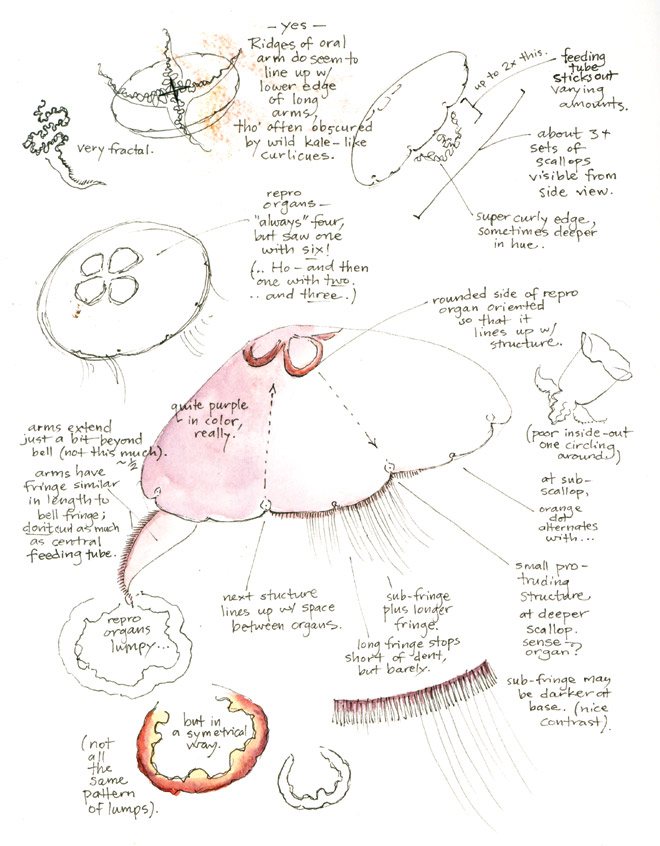 — yes —
Ridges of oral
arm do seem to
line up w/
lower edge
of long
arms,
tho' often obscured
by wild kale-like
curlicues.
very fractal.
up to 2x this.
feeding
tube
sticks out
varying
amounts.
about 3+
sets of
scallops
visible from
side view.
super curly edge,
sometimes deeper
in hue.
repro
organs —
"always" four,
but saw one
with six!
(.. Ho - and then
one with two.
.. and three.)
rounded side of repro
organ oriented
so that it
lines up w/
structure.
quite purple
in color,
really.
(poor inside-out
one circling
around.)
arms extend
just a bit beyond
bell (not this much).
~ 1/2
arms have
fringe similar
in length to
bell fringe;
don't curl as much
as central
feeding tube.
at sub-
scallop,
orange
dot
alternates
with...
small pro-
truding
structure
at deeper
scallop.
sense
organ?
next stucture
lines up w/ space
between organs.
sub-fringe
plus longer
fringe.
long fringe stops
short of dent,
but barely.
sub-fringe may
be darker at
base. (nice
contrast).
repro
organs
lumpy...
but in
a symetrical
way.
(not
all
the
same
pattern
of lumps).